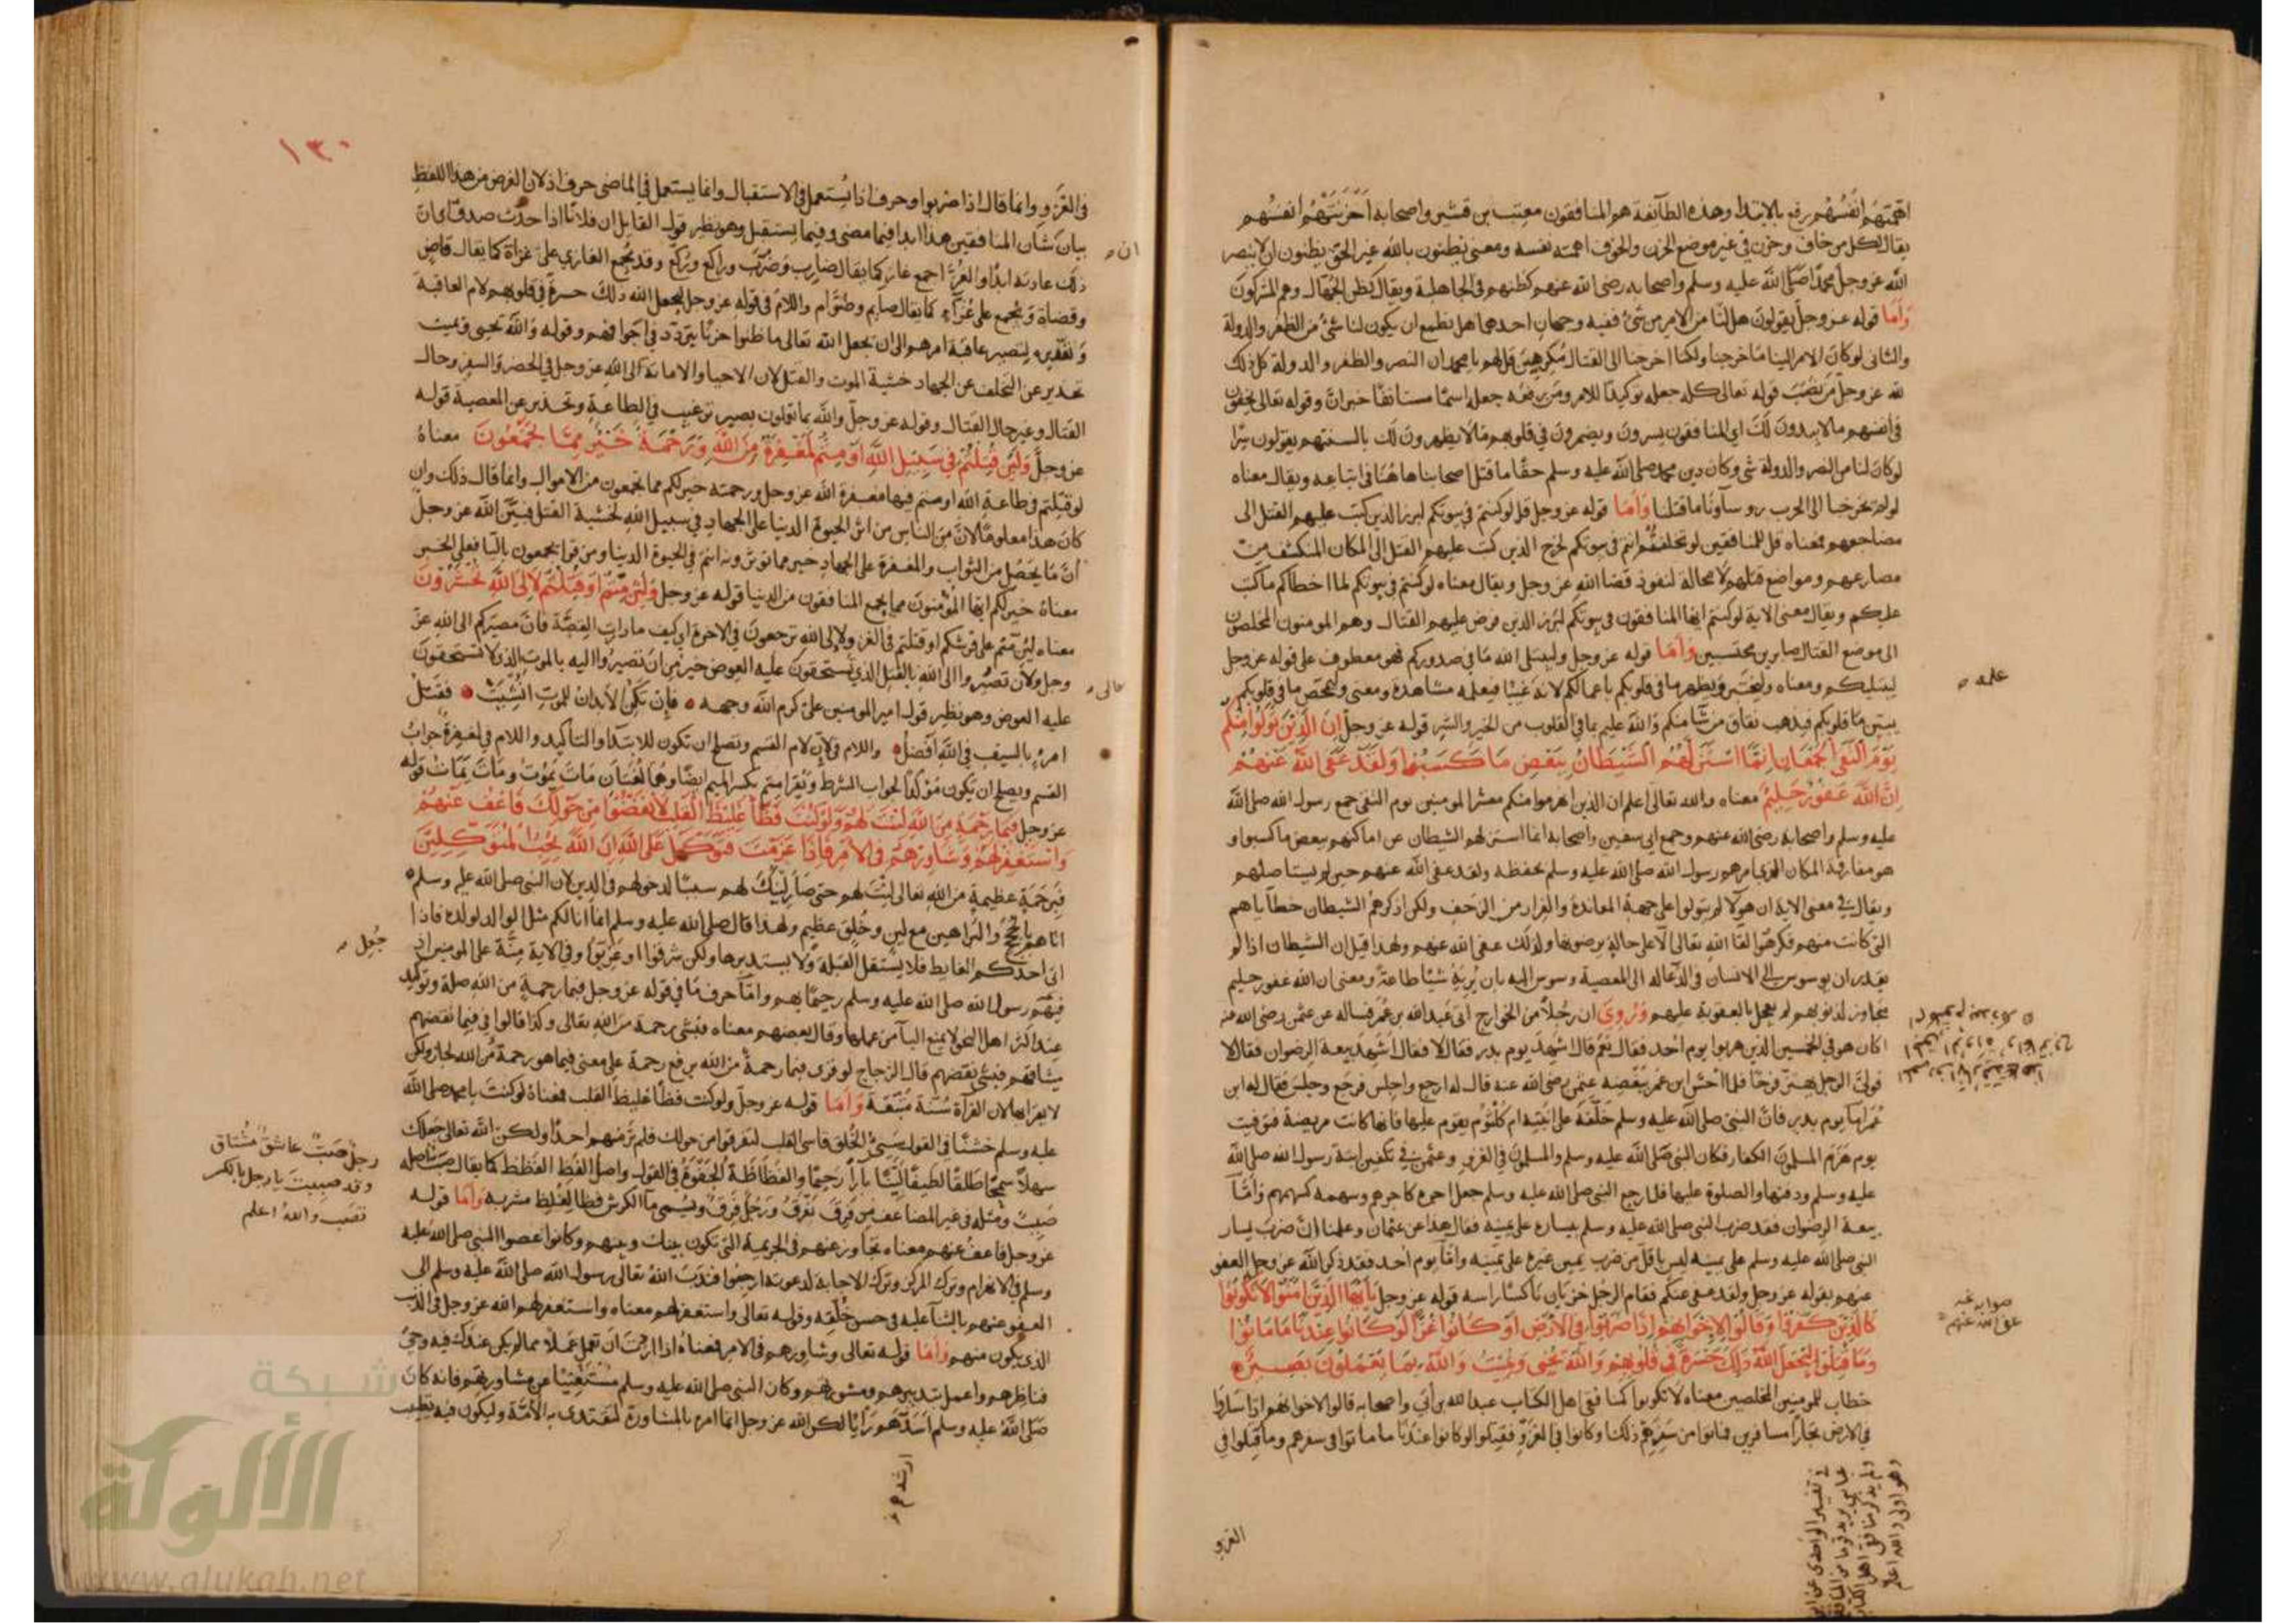 اهمتهم انفسهم رفع بالابتدا وهذه الطآئفة هو المنافقون معتب بن قشير واصحابه احزنتهم انفسهم
يقال لكل من خاف وحزن في غير موضع الحزن والخوف اهمته نفسه ومعنى يظنون بالله غير الحق يظنون ان لا ينصر
الله عز وجل محمدا صلى الله عليه وسلم واصحابه رضى الله عنهم كظنهم في الجاهلية ويقال كظن الجهال وهم المشركون
وأما قوله عز وجل يقولون هل لنا من الامر من شيء ففيه وجهان احدهما هل نطمع ان يكون لنا شيء من الظفر والدولة
والثانى لو كان الامر الينا ما خرجنا ولكنا اخرجنا الى القتال مكرهين قل لهم يا محمد ان النصر والظفر والدولة كل ذلك
لله عز وجل من نصب قوله تعالى كله جعله توكيدا للامر ومن رفعه جعله اسما مستانفا خبر ان وقوله تعالى يخفون
في انفسهم ما لا يبدون لك اي المنافقون يسرون ويضمرون في قلوبهم ما لا يظهرون لك بالسنتهم يقولون سرا
لو كان لنا من النصر والدولة شى وكان دين محمد صلى الله عليه وسلم حقا ما قتل اصحابنا هاهنا في اتباعه ويقال معناه
لو لم تخرجنا الى الحرب روسآونا ما قتلنا وأما قوله عز وجل قل لو كنتم في بيوتكم لبرز الذين كتب عليهم القتل الى
مضاجعهم فمعناه قل للمنافقين لو تخلفتم انتم في بيوتكم لخرج الذين كتب عليهم القتل الى المكان المنكشف من
مصارعهم ومواضع قتلهم لا محالة لنفوذ قضا الله عز وجل ويقال معناه لو كنتم في بيوتكم لما اخطاكم ما كتب
عليكم ويقال معنى الاية لو كنتم ايها المنافقون في بيوتكم لبرز الذين فرض عليهم القتال وهم المومنون المخلصون
الى موضع القتال صابرين محتسبين وأما قوله عز وجل وليبتلى الله ما في صدوركم فهو معطوف على قوله عز وجل
ليبتليكم ومعناه وليختبر ويظهر ما في قلوبكم باعمالكم لانه غيبا فيعلمه مشاهدة ومعنى وليمحص ما في قلوبكم
يبين ما في قلوبكم فيذهب نفاق من شآ منكم والله عليم بما في القلوب من الخير والشر قوله عز وجل إن الذين تولوا منكم
يوم التقى الجمعان إنما استزلهم الشيطان ببعض ما كسبوا ولقد عفى الله عنهم
إن الله غفور حليم معناه والله تعالى اعلم ان الذين انهزموا منكم معشر المومنين يوم التقى جمع رسول الله صلى الله
عليه وسلم واصحابه رضى الله عنهم وجمع ابي سفين واصحابه انما استزلهم الشيطان عن اماكنهم ببعض ما كسبوا و
هو مفارقة المكان الذي امرهم رسول الله صلى الله عليه وسلم بحفظه ولقد عفى الله عنهم حين لم يستاصلهم
ويقال في معنى الاية ان هولآ لم يتولوا على جهة المعاندة والفرار من الزحف ولكن اذكرهم الشيطان خطآياهم
التى كانت منهم فكرهوا لقا الله تعالى الا على حالة يرضونها ولذلك عفى الله عنهم ولهذا قيل ان الشيطان اذا لم
يقدر ان يوسوس الى الانسان في الدعآ له الى المعصية وسوس اليه بان يريه شيا طاعة ومعنى ان الله غفور حليم
متجاوز لذنوبهم لم يعجل بالعقوبة عليهم وروى ان رجلا من الخوارج اتى عبد الله بن عمر فساله عن عثمن رضى الله عنه
اكان هو في الخمسين الذين هربوا يوم احد فقال نعم قال اشهد يوم بدر فقال لا فقال اشهد بيعة الرضوان فقال لا
فولى الرجل يهتز فرحا فلما احس ابن عمر ببغضه عثمن رضى الله عنه قال له ارجع واجلس فرجع وجلس فقال له ابن
عمر اما يوم بدر فان النبى صلى الله عليه وسلم خلفه على ابنته ام كلثوم يقوم عليها فانها كانت مريضة فتوفيت
يوم هزم المسلمون الكفار فكان النبى صلى الله عليه وسلم والمسلمون في الغزو وعثمن في تكفين ابنة رسول الله صلى الله
عليه وسلم ودفنها والصلوة عليها فلما رجع النبى صلى الله عليه وسلم جعل اجره كاجرهم وسهمه كسهمهم وأما
بيعة الرضوان فقد ضرب النبى صلى الله عليه وسلم بيساره على يمينه فقال هذا عن عثمان وعلمنا ان ضرب يسار
النبى صلى الله عليه وسلم على يمينه ليس باقل من ضرب يمين غيره على يمينه وامآ يوم احد فقد ذكر الله عز وجل العفو
عنهم بقوله عز وجل ولقد عفى عنكم فقام الرجل خزيان ناكسا راسه قوله عز وجل يأيها الذين امنوا لا تكونوا
كالذين كفروا وقالوا لإخوانهم إذا ضربوا في الارض او كانوا غزا لو كانوا عندنا ما ماتوا
وما قتلوا ليجعل الله ذلك حسرة في قلوبهم والله يحيى ويميت والله بما يعملون بصير
خطاب للمومنين المخلصين معناه لا تكونوا كمنافقى اهل الكتاب عبد الله بن أبي واصحابه قالوا لاخوانهم اذا ساروا
في الارض تجارا مسافرين فماتوا من سفرهم ذلك او كانوا في الغزو فقتلوا لو كانوا عندنا ما ماتوا في سفرهم وما قتلوا في
علمه
صوابه عنه
عفى الله عنهم
في تفسير الواحدى عن ابن
عباس يريد قوما من المنافقين
ولم يذكر منافقى اهل الكتاب
وهو اولى والله اعلم
الغزو
١٣٠
في الغزو وانما قال اذا ضربوا وحرف اذا يستعمل في الاستقبال وانما يستعمل في الماضى حرف اذ لان الغرض من هذا اللفظ
بيان شان المنافقين هذا ابدا فيما مضى وفيما يستقبل وهو نظير قول القايل ان فلانا اذا حدث صدق اى ان
ذلك عادته ابدا والغزا جمع غاز كما يقال ضارب وضرب وراكع وركع وقد يجمع الغازي على غزاة كما يقال قاض
وقضاة ويجمع على غزآء كما يقال صايم وصوام واللام في قوله عز وجل ليجعل الله ذلك حسرة في قلوبهم لام العاقبة
وتقديره ليصير عاقبة امرهم الى ان يجعل الله تعالى ما ظنوا حزنا يتردد في اجوافهم وقوله والله يحيى ويميت
تحذير عن التخلف عن الجهاد خشية الموت والقتل لان الاحيا والاماتة الى الله عز وجل في الحضر والسفر وحال
القتال وغير حال القتال وقوله عز وجل والله بما تعملون بصير ترغيب في الطاعة وتحذير عن المعصية قوله
عز وجل ولئن قتلتم في سبيل الله أو متم لمغفرة من الله ورحمة خير مما تجمعون معناه
لو قتلتم في طاعة الله او متم فيها مغفرة الله عز وجل ورحمته خير لكم مما تجمعون من الاموال وانما قال ذلك وان
كان هذا معلوما لان من الناس من اثر الحيوة الدنيا على الجهاد في سبيل الله لخشية القتل فبين الله عز وجل
أن ما يحصل من الثواب والمغفرة على الجهاد خير مما توثرونه انتم في الحيوة الدنيا ومن قرا يجمعون باليا فعلى الخبر
معناه خير لكم ايها المؤمنون مما يجمع المنافقون من الدنيا قوله عز وجل ولئن متم أو قتلتم لإلى الله تحشرون
معناه لئن متم على فرشكم او قتلتم في الغزو لإلى الله ترجعون في الاخرة اي كيف ما دارت القصة فان مصيركم الى الله عز
وجل ولان تصيروا الى الله بالقتل الذي تستحقون عليه العوض خير من ان تصيروا اليه بالموت الذي لا تستحقون
عليه العوض وهو نظير قول امير المومنين على كرم الله وجهه فإن تكن الابدان للموت انشئت فقتل
امرئ بالسيف في الله افضل واللام في لإن لام القسم ويصلح ان تكون للابتدآ والتاكيد واللام في لمغفرة جواب
القسم ويصلح ان يكون مؤكدا لجواب الشرط ويقرا متم بكسر الميم ايضا وهما لغتان مات يموت ومات يمات قوله
عز وجل فبما رحمة من الله لنت لهم ولو كنت فظا غليظ القلب لانفضوا من حولك فاعف عنهم
واستغفر لهم وشاورهم في الامر فإذا عزمت فتوكل على الله إن الله يحب المتوكلين
فبرحمة عظيمة من الله تعالى لنت لهم حتى صار لينك لهم سببا لدخولهم في الدين لان النبى صلى الله عليه وسلم
اتاهم بالحجج والبراهين مع لين وخلق عظيم ولهذا قال صلى الله عليه وسلم انما انا لكم مثل الوالد لولده فاذا
اتى احدكم الغايط فلا يستقبل القبلة ولا يستدبرها ولكن شرقوا او غربوا وفي الاية منة على المومنين اذ
فيهم رسول الله صلى الله عليه وسلم رحيما بهم وامآ حرف ما في قوله عز وجل فبما رحمة من الله صلة وتوكيد
عند اكثر اهل النحو لا يمنع البآ من عملها وقال بعضهم معناه فبشى رحمة من الله تعالى وكذا قالوا في فبما نقضهم
ميثاقهم فبشى نقضهم قال الزجاج لو قرى فبما رحمة من الله برفع رحمة على معنى فبما هو رحمة من الله لجاز ولكن
لا يقرا بها لان القرآة سنة متبعة وأما قوله عز وجل ولو كنت فظا غليظ القلب فمعناه لو كنت يا محمد صلى الله
عليه وسلم خشنا في القول سيئ الخلق قاسى القلب لتفرقوا من حولك فلم تر منهم احدا ولكن الله تعالى جعلك
سهلا سمحا طلقا لطيفا لينا بارا رحيما والفظاظة الجفوة في القول واصل الفظ الفظظ كما يقال صب اصله
صبب ومثله في غير المضاعف من فرق يفرق ورجل فرق ويسمى مآ الكرش فظا لغلظ مشربه وأما قوله
عز وجل فاعف عنهم معناه تجاوز عنهم في الجريمة التى تكون بينك وبينهم وكانوا عصوا النبى صلى الله عليه
وسلم في الانهزام وترك المركز وترك الاجابة لدعوته ارجعوا فندب الله تعالى رسول الله صلى الله عليه وسلم الى
العفو عنهم بالثنآ عليه في حسن خلقه وقوله تعالى واستغفر لهم معناه واستغفر لهم الله عز وجل في الذنب
الذي يكون منهم وأما قوله تعالى وشاورهم في الامر فمعناه اذا اردت ان تعمل عملا مما لم يكن عندك فيه وحي
فناظرهم واعمل بتدبيرهم ومشورتهم وكان النبى صلى الله عليه وسلم مستغنيا عن مشاورتهم فانه كان
صلى الله عليه وسلم اسدهم رأيا لكن الله عز وجل انما امره بالمشاورة لتقتدى به الامة وليكون فيه تطييب
ان
جعل
رجل صب عاشق مشتاق
وقد صببت يا رجل بالكسر
تصب والله اعلم
ارشدهم
شبكة
الألوكة
www.alukah.net